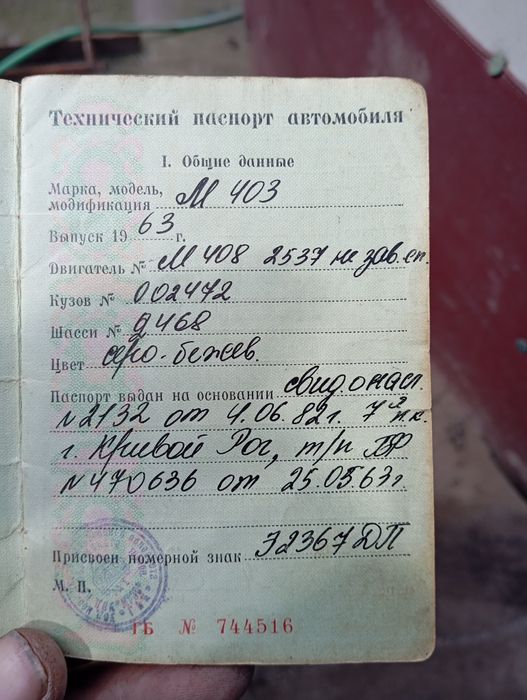 Технический паспорт автомобиля
I. Общие данные
Марка, модель,
модификация М 403
Выпуск 19 63 г.
Двигатель № М 408 2537 не зав.
Кузов № 002472
Шасси № 9468
Цвет серо-бежев.
Паспорт выдан на основании свид о насл.
№2132 от 4.06.82г. 7
г. Кривой Рог, т/п
№470636 от 25.05.63г
Присвоен номерной знак Э2367ДП
М. П.
ГБ № 744516